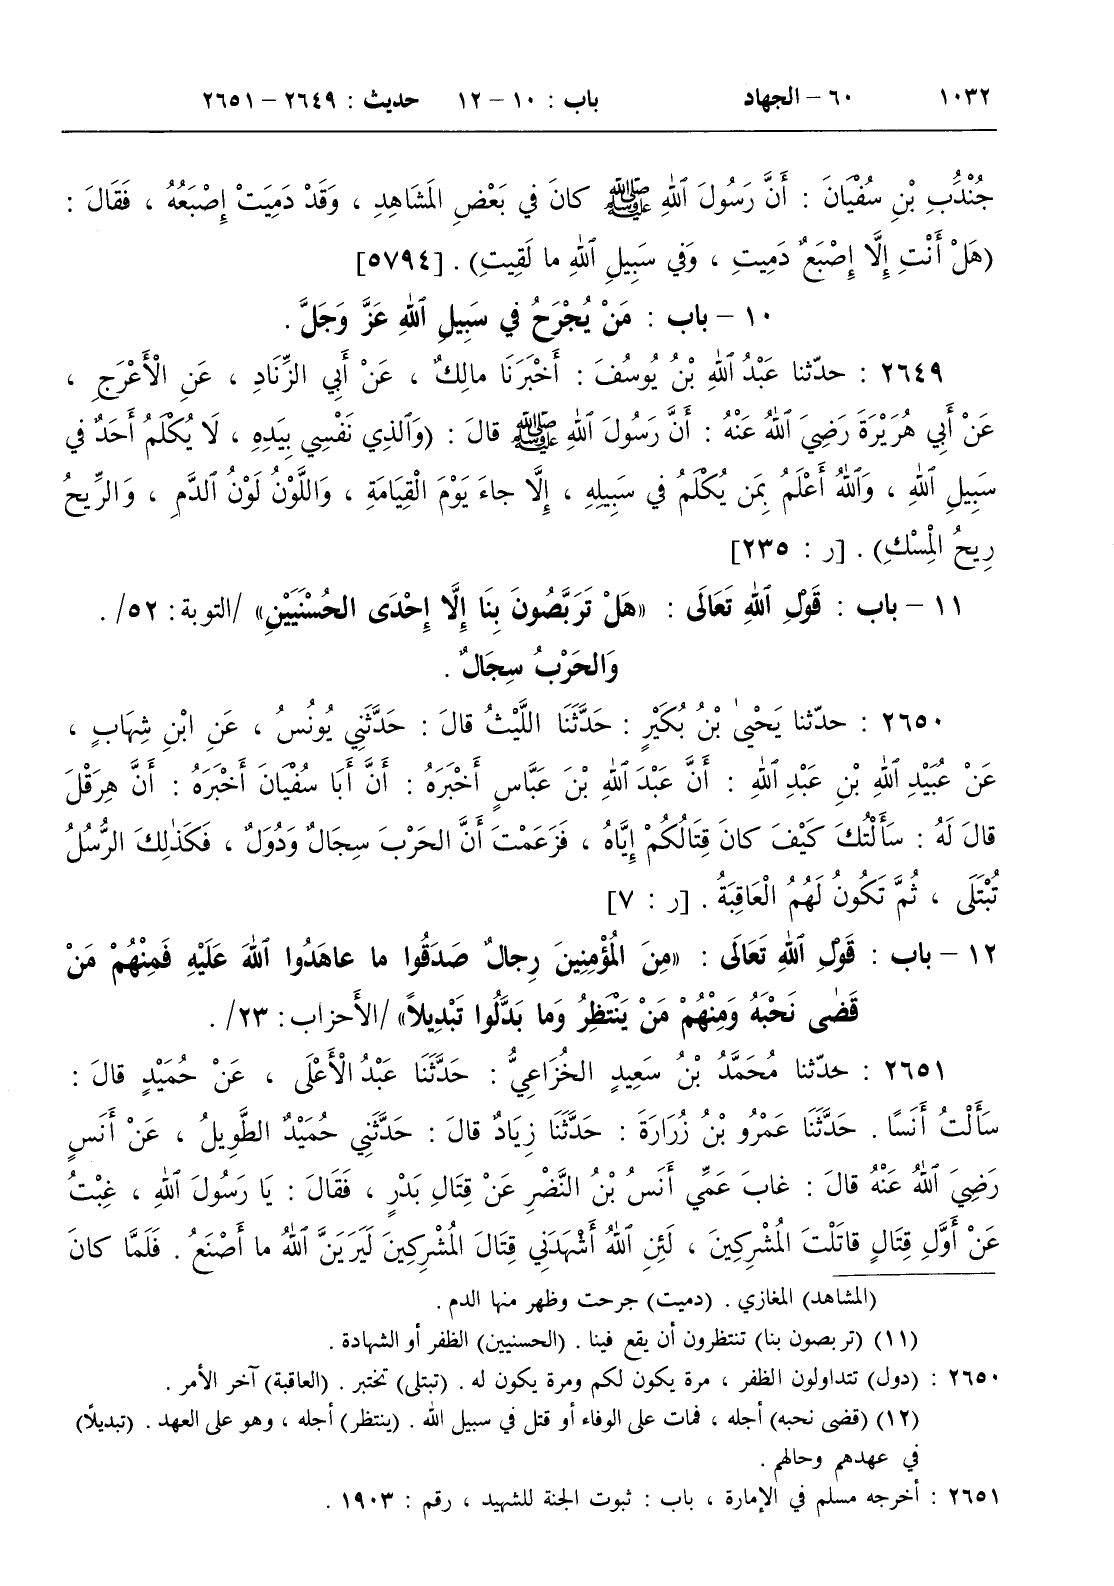 ١٠٣٢ ٦٠ – الجهاد باب : ١٠ – ١٢ حديث : ٢٦٤٩ – ٢٦٥١
جُنْدُبِ بْنِ سُفْيَانَ : أَنَّ رَسُولَ ٱللهِ ﷺ كانَ في بَعْضِ الْمَشَاهِدِ ، وَقَدْ دَمِيَتْ إِصْبَعُهُ ، فَقَالَ :
(هَلْ أَنْتِ إِلَّا إِصْبَعٌ دَمِيتِ ، وَفي سَبِيلِ ٱللهِ ما لَقِيتِ) . [٥٧٩٤]
١٠ – باب : مَنْ يُجْرَحُ في سَبِيلِ ٱللهِ عَزَّ وَجَلَّ .
٢٦٤٩ : حدّثنا عَبْدُ ٱللهِ بْنُ يُوسُفَ : أَخْبَرَنَا مالِكٌ ، عَنْ أَبِي الزِّنَادِ ، عَنِ الْأَعْرَجِ ،
عَنْ أَبِي هُرَيْرَةَ رَضِيَ ٱللهُ عَنْهُ : أَنَّ رَسُولَ ٱللهِ ﷺ قالَ : (وَٱلَّذِي نَفْسِي بِيَدِهِ ، لَا يُكْلَمُ أَحَدٌ في
سَبِيلِ ٱللهِ ، وَٱللهُ أَعْلَمُ بِمَن يُكْلَمُ في سَبِيلِهِ ، إِلَّا جاءَ يَوْمَ الْقِيَامَةِ ، وَاللَّوْنُ لَوْنُ الدَّمِ ، وَالرِّيحُ
رِيحُ الْمِسْكِ) . [ر : ٢٣٥]
١١ – باب : قَوْلِ ٱللهِ تَعَالَى : «هَلْ تَرَبَّصُونَ بِنَا إِلَّا إِحْدَى الحُسْنَيَيْنِ» /التوبة: ٥٢/ .
وَالحَرْبُ سِجَالٌ .
٢٦٥٠ : حدّثنا يَحْيىٰ بْنُ بُكَيْرٍ : حَدَّثَنَا اللَّيْثُ قالَ : حَدَّثَنِي يُونُسُ ، عَنِ ابْنِ شِهَابٍ ،
عَنْ عُبَيْدِ ٱللهِ بْنِ عَبْدِ ٱللهِ : أَنَّ عَبْدَ ٱللهِ بْنَ عَبَّاسٍ أَخْبَرَهُ : أَنَّ أَبَا سُفْيَانَ أَخْبَرَهُ : أَنَّ هِرَقْلَ
قالَ لَهُ : سَأَلْتُكَ كَيْفَ كانَ قِتَالُكُمْ إِيَّاهُ ، فَزَعَمْتَ أَنَّ الحَرْبَ سِجَالٌ وَدُوَلٌ ، فَكَذٰلِكَ الرُّسُلُ
تُبْتَلَى ، ثُمَّ تَكُونُ لَهُمُ الْعَاقِبَةُ . [ر : ٧]
١٢ – باب : قَوْلِ ٱللهِ تَعَالَى : «مِنَ الْمُؤْمِنِينَ رِجالٌ صَدَقُوا ما عاهَدُوا ٱللهَ عَلَيْهِ فَمِنْهُمْ مَنْ
قَضٰى نَحْبَهُ وَمِنْهُمْ مَنْ يَنْتَظِرُ وَما بَدَّلُوا تَبْدِيلاً» /الأحزاب: ٢٣/ .
٢٦٥١ : حدّثنا مُحَمَّدُ بْنُ سَعِيدٍ الخُزَاعِيُّ : حَدَّثَنَا عَبْدُ الْأَعْلَى ، عَنْ حُمَيْدٍ قالَ :
سَأَلْتُ أَنَسًا . حَدَّثَنَا عَمْرُو بْنُ زُرَارَةَ : حَدَّثَنَا زِيَادٌ قالَ : حَدَّثَنِي حُمَيْدٌ الطَّوِيلُ ، عَنْ أَنَسٍ
رَضِيَ ٱللهُ عَنْهُ قالَ : غابَ عَمِّي أَنَسُ بْنُ النَّضْرِ عَنْ قِتَالِ بَدْرٍ ، فَقَالَ : يَا رَسُولَ ٱللهِ ، غِبْتُ
عَنْ أَوَّلِ قِتَالٍ قاتَلْتَ الْمُشْرِكِينَ ، لَئِنِ ٱللهُ أَشْهَدَنِي قِتَالَ الْمُشْرِكِينَ لَيَرَيَنَّ ٱللهُ ما أَصْنَعُ . فَلَمَّا كانَ
(المشاهد) المغازي . (دميت) جرحت وظهر منها الدم .
(١١) (تربصون بنا) تنتظرون أن يقع فينا . (الحسنيين) الظفر أو الشهادة .
٢٦٥٠ : (دول) تتداولون الظفر ، مرة يكون لكم ومرة يكون له . (تبتلى) تختبر . (العاقبة) آخر الأمر .
(١٢) (قضى نحبه) أجله ، فمات على الوفاء أو قتل في سبيل الله . (ينتظر) أجله ، وهو على العهد . (تبديلاً)
في عهدهم وحالهم .
٢٦٥١ : أخرجه مسلم في الإمارة ، باب : ثبوت الجنة للشهيد ، رقم : ١٩٠٣ .